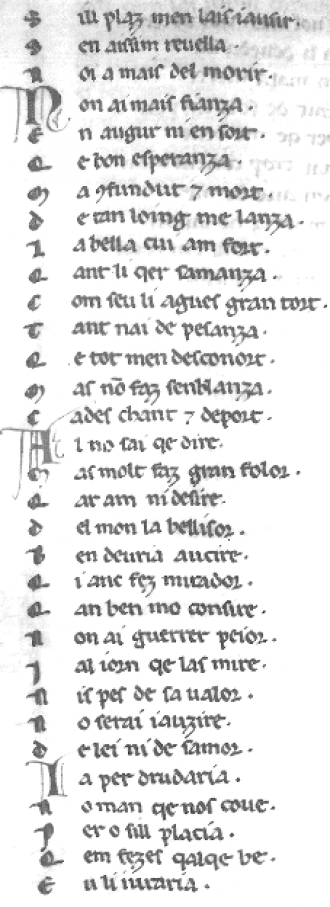 S ill plaz men lais iausir.
S en aissim reuella.
N oi a mais del morir.
N on ai mais fianza.
E n augur ni en sort.
Q e bon esperanza.
M a ꝯfundut ⁊ mort.
d e tan loing me lanza.
L a bella cui am fort.
Q ant li qer samanza.
C om seu li agues gran tort.
T ant nai de pesanza.
Q e tot men desconort.
M as nō faz senblanza.
C ades chant ⁊ deport.
A l no sai qe dire.
M as molt faz gran folor.
Q ar am ni desire.
d el mon la bellisor.
B en deuria aucire.
Q i anc fez mirador.
Q an ben mo consire.
N on ai guerrer peior.
J al iorn qe las mire.
N is pes de sa ualor.
N o serai iauzire.
d e lei ni de samor.
I a per drudaria.
N o man qe nos coue.
P er o sill placia.
Q em fezes qalqe be.
E u li iuraria.